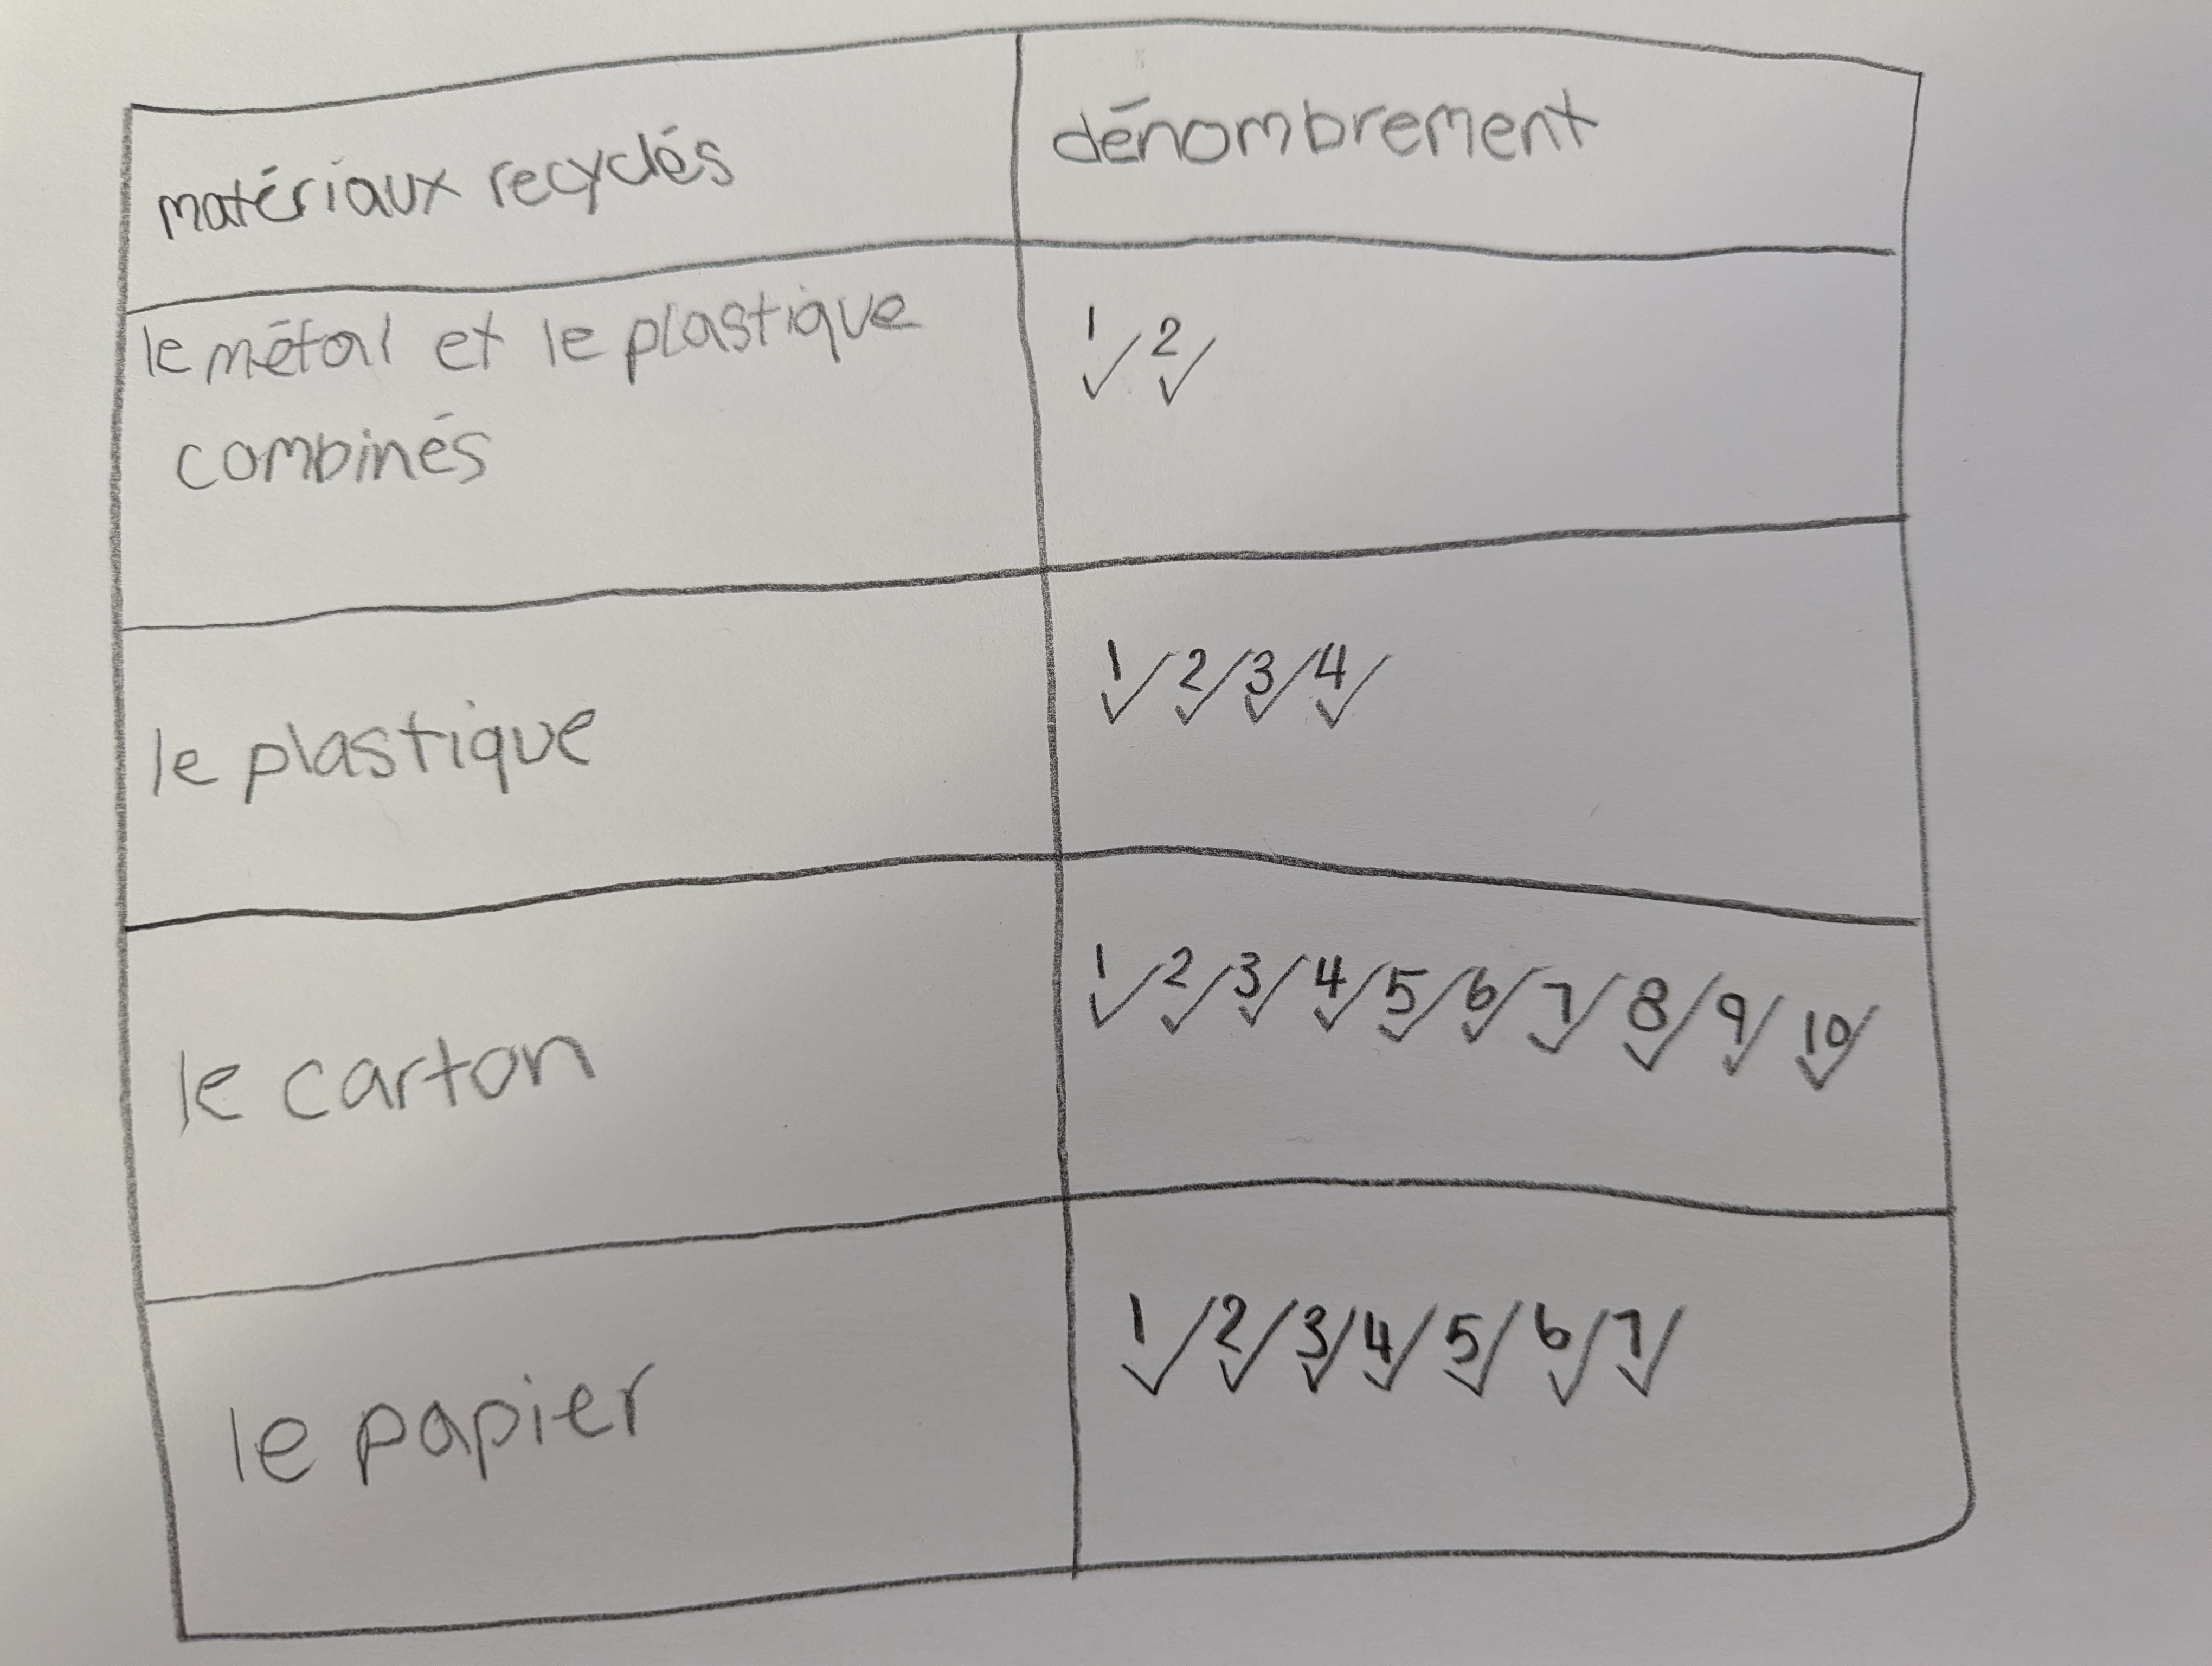 matériaux recyclés
dénombrement
le métal et le plastique
combinés
1 2
le plastique
1 2 3 4
le carton
1 2 3 4 5 6 7 8 9 10
le papier
1 2 3 4 5 6 7